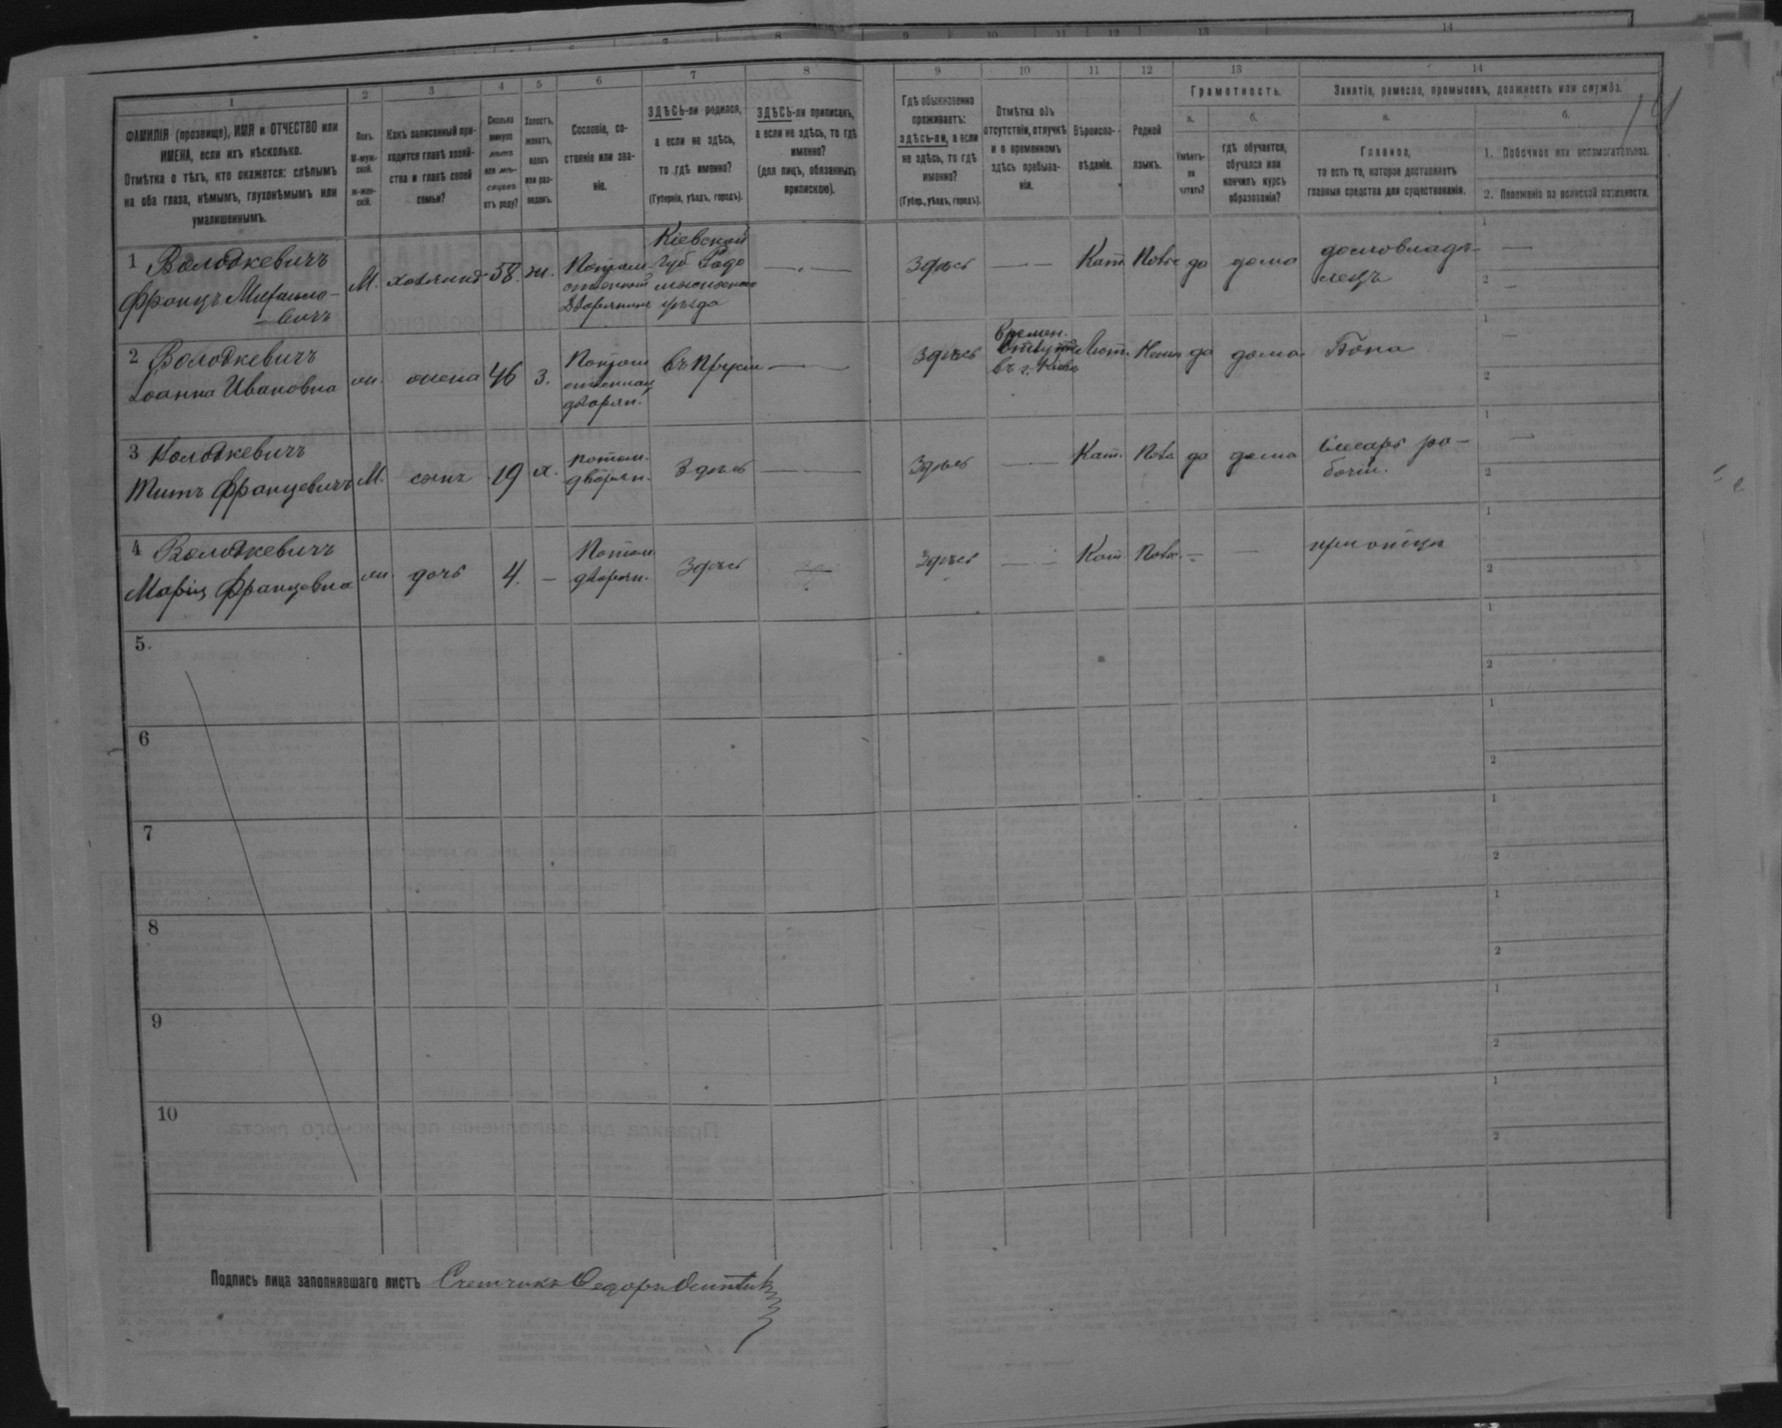 1 2 3 4 5 6 7 8 9 10 11 12 13 14
ФАМИЛІЯ (прозвище), ИМЯ и ОТЧЕСТВО или
ИМЕНА, если ихъ нѣсколько.
Отмѣтка о тѣхъ, кто окажется: слѣпымъ
на оба глаза, нѣмымъ, глухонѣмымъ или
умалишеннымъ.
Полъ.
М-муж-
ской.
Ж-жен-
скій.
Какъ записанный при-
ходится главѣ хозяй-
ства и главѣ своей
семьи?
Сколько
минуло
лѣтъ
или мѣ-
сяцевъ
отъ роду?
Холостъ,
женатъ,
вдовъ
или раз-
веденъ.
Сословіе, со-
стояніе или зва-
ніе.
ЗДѢСЬ-ли родился,
а если не здѣсь,
то гдѣ именно?
(Губернія, уѣздъ, городъ).
ЗДѢСЬ-ли приписанъ,
а если не здѣсь, то гдѣ
именно?
(для лицъ, обязанныхъ
припискою).
Гдѣ обыкновенно
проживаетъ:
здѣсь-ли, а если
не здѣсь, то гдѣ
именно?
(Губер., уѣздъ, городъ).
Отмѣтка объ
отсутствіи, отлучкѣ
и о временномъ
здѣсь пребыва-
ніи.
Вѣроиспо-
вѣданіе.
Родной
языкъ.
Грамотность.
а.
Умѣетъ-
ли
читать?
б.
гдѣ обучается,
обучался или
кончилъ курсъ
образованія?
Занятіе, ремесло, промыселъ, должность или служба.
а.
Главное,
то есть то, которое доставляетъ
главныя средства для существованія.
б.
1. Побочное или вспомогательное.
2. Положеніе по воинской повинности.
1 Володкевичъ
Францъ Михаило-
вичъ
М. хозяинъ 58. ж.
Потом-
ственный
Дворянинъ
Кіевской
губ Радо
мысльскаго
уѣзда
здѣсь Кат. да дома
домовладѣ-
лецъ
2 Володкевичъ
Іоанна Ивановна
ж. жена 46 з.
Потом
ственная
дворян.
въ Пруссіи
здѣсь
Времен.
въ г. Кіевѣ
да дома Бона
3 Володкевичъ
Титъ Францевичъ
М. сынъ 19 х.
потом.
дворян.
Здѣсь Здѣсь Кат. да дома
Слесарь ра-
бочій.
4 Володкевичъ
Марія Францевна
ж. дочь 4. –
Потом
дворян.
Здѣсь Здѣсь Кат – – при отцѣ
5.
6
7
8
9
10
Подпись лица заполнявшаго листъ Счетчикъ Федоръ